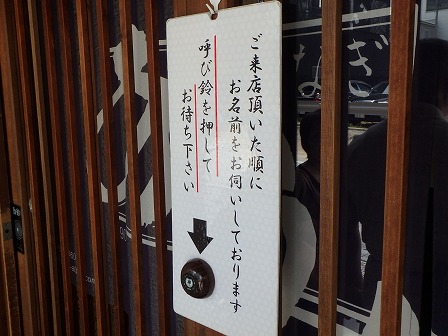 ご来店頂いた順に
お名前をお伺いしております
呼び鈴を押して
お待ち下さい
なぎ